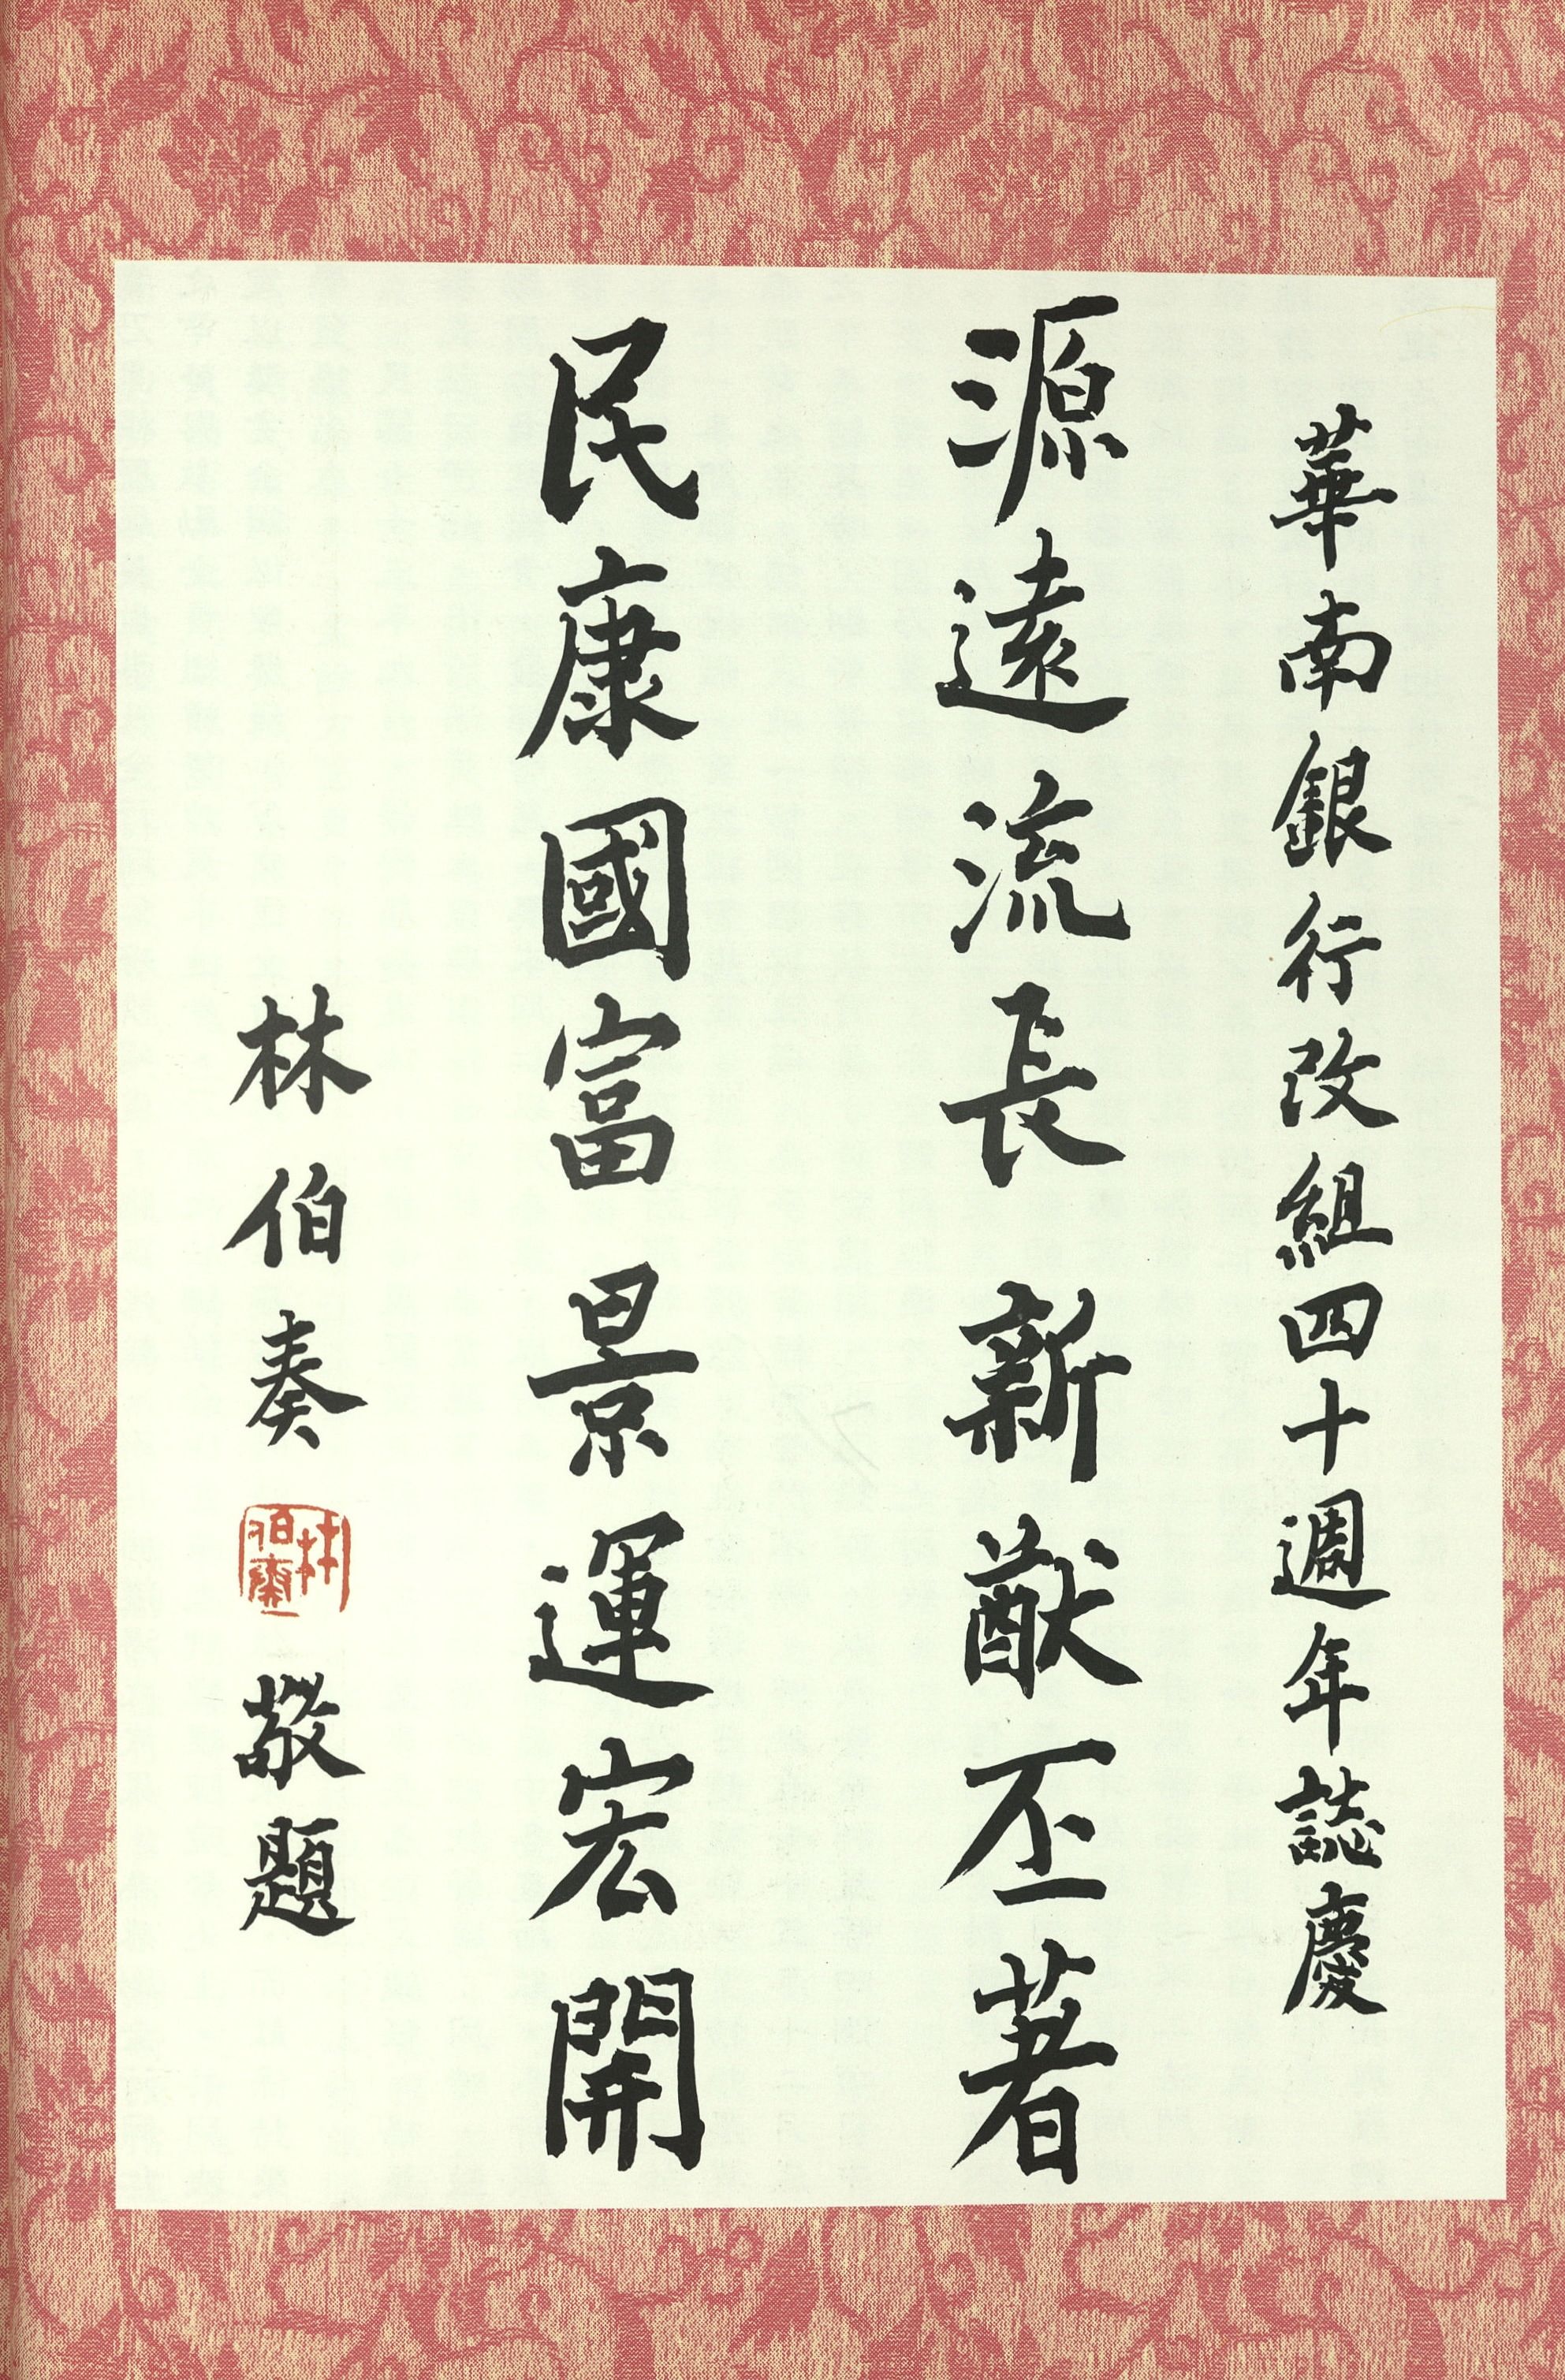 華南銀行改組四十週年誌慶
源遠流長 新猷丕著
民康國富 景運宏開
林伯奏 敬題
林伯奏